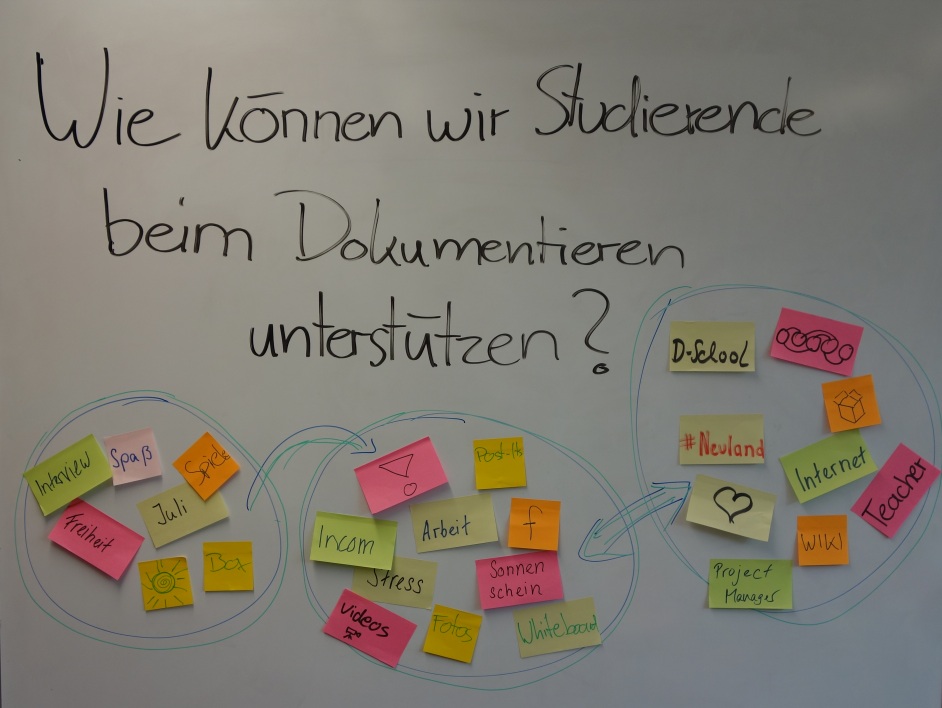 Wie können wir Studierende
beim Dokumentieren
unterstützen?
Interview
Spaß
Spiele
Freiheit
Juli
Box
Post-Its
Incom
Arbeit
f
Stress
Sonnen
schein
Videos
Fotos
Whiteboard
D-School
#Neuland
Internet
Teacher
WIKI
Project
Manager